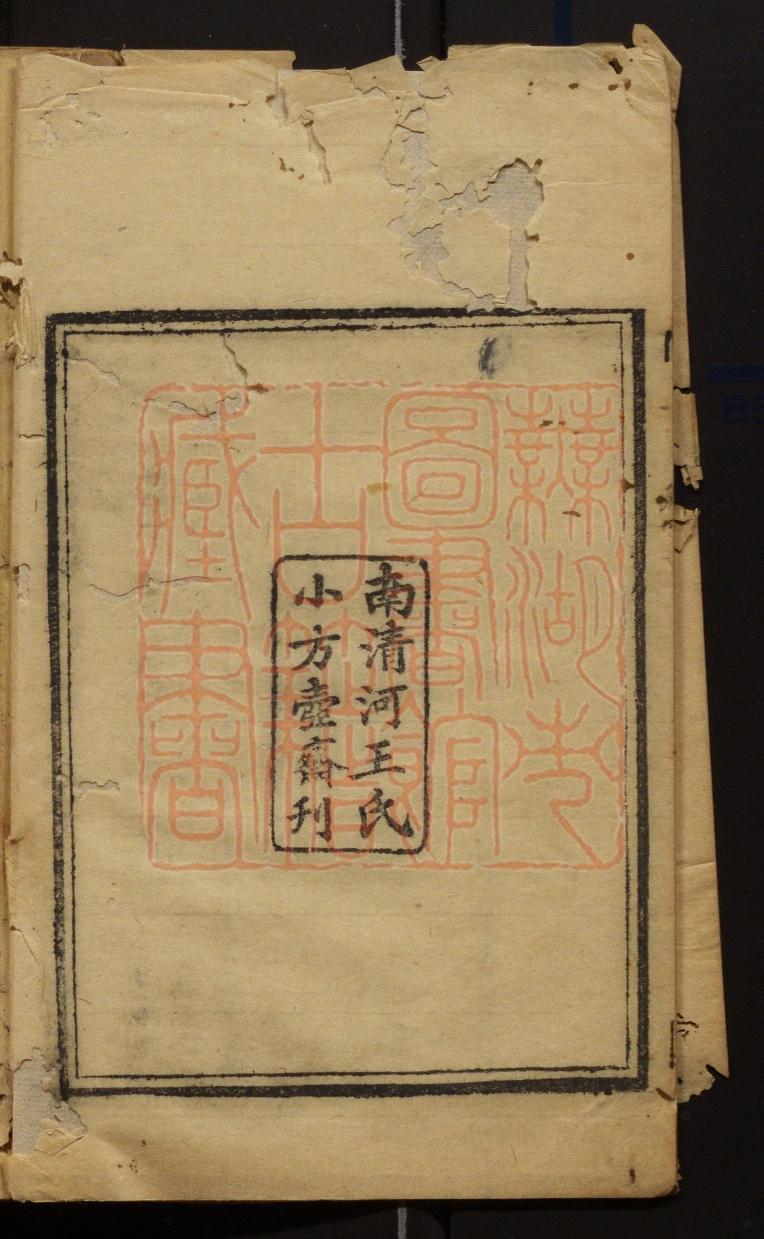 南清河王氏
小方壺齋刊
蕪湖市
圖書館
古籍
藏書